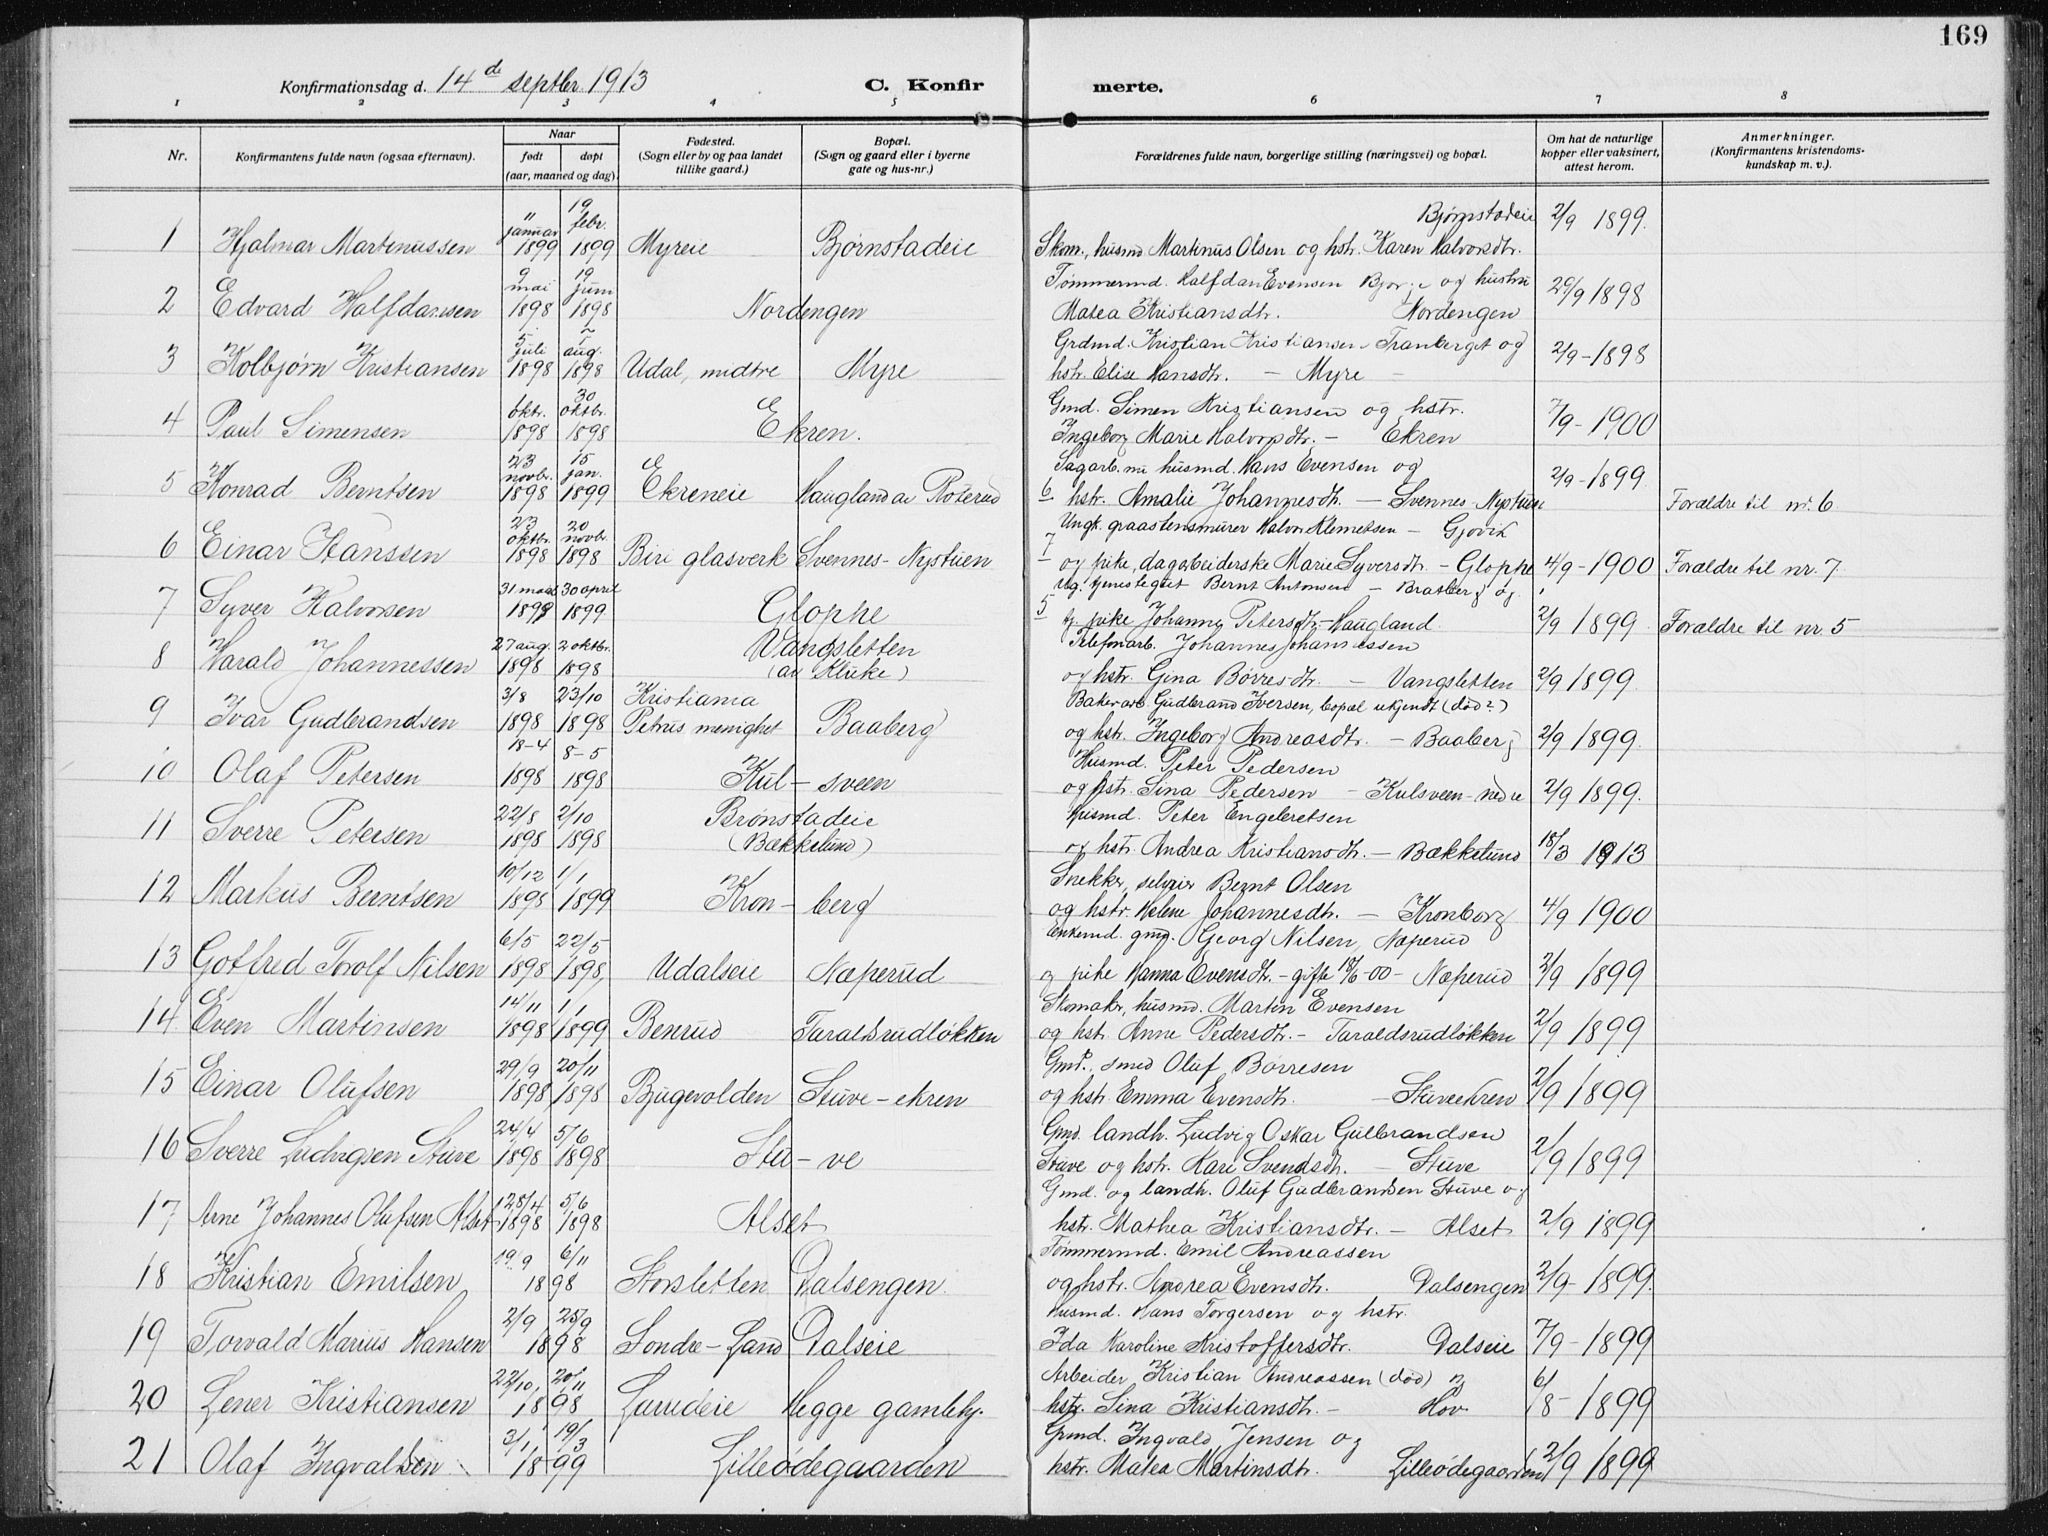 169
Konfirmationsdag d. 14de septbr. 1913 C. Konfirmerte.
1 2 3 4 5 6 7 8
Nr. Konfirmantens fulde navn (ogsaa efternavn). Naar født døpt (aar, maaned og dag). Fødested. (Sogn eller by og paa landet tillike gaard.) Bopæl. (Sogn og gaard eller i byerne gate og hus-nr.) Forældrenes fulde navn, borgerlige stilling (næringsvei) og bopæl. Om hat de naturlige kopper eller vaksinert, attest herom. Anmerkninger. (Konfirmantens kristendomskundskap m. v.).
1 Hjalmar Martinussen 11 januar 1899 19 febr. 1899 Myreie Bjørnstadeie Bjørnstadeie
Skom., husmd Martinus Olsen og hstr. Karen Halvorsdtr. 2/9 1899.
2 Edvard Halfdansen 9 mai 1898 19 juni 1898 Nordengen Tømmermd. Halfdan Evensen og hustru
Matea Kristiansdtr. Nordengen 29/9 1898
3 Kolbjørn Kristiansen 5 juli 1898 7 aug. 1898 Udal, midtre Myre Grdmd. Kristian Kristiansen Tranberget og
hstr. Elise Hansdtr. - Myre - 2/9-1898
4 Paul Simensen 6 oktr. 1898 30 oktbr. 1898 Ekren. Gmd. Simen Kristiansen og hstr.
Ingeborg Marie Halvorsdtr. - Ekren 7/9-1900
5 Konrad Berntsen 23 novbr. 1898 15 jan. 1899 Ekreneie Haugland av Roterud Sagarb. husmd. Hans Evensen og
6 hstr. Amalie Johannesdtr. - Svennes-Nystuen 2/9-1899 Forældre til nr. 6
6 Einar Hanssen 23 oktbr. 1898 20 novbr. 1898 Biri glasverk Svennes-Nystuen Ungk. graastensmurer Halvor Klemetsen - Gjøvik
7 og pike, dagarbeiderske Marie Syversdtr. - Glophe 4/9-1900 Forældre til nr. 7
7 Syver Halvorsen 31 mars 1899 30 april 1899 Glophe Ug. tjenestegut Bernt Antonsen - Bratberg og
5 tj. pike Johanne Petersdtr. - Haugland 2/9 1899 Forældre til nr 5
8 Harald Johannessen 27 aug. 1898 2 oktbr. 1898 Vangsletten (av Kluke) Telefonarb. Johannes Johannessen
og hstr. Gina Børresdtr. - Vangsletten 2/9 1899.
9 Ivar Gudbrandsen 3/8 1898 23/10 1898 Kristiania Petrus menighet Baaberg Bakerarb. Gudbrand Iversen, bopæl ukjendt (død?)
og hstr. Ingeborg Andreasdtr. - Baaberg 2/9 1899.
10 Olaf Petersen 18-4 1898 8-5 1898 Kul-sveen Husmd. Peter Pedersen
og hstr. Sina Pedersen - Kulsveen-nedre 2/9 1899.
11 Sverre Petersen 22/8 1898 2/10 1898 Brønstadeie (Bækkelund) Husmd. Peter Engebretsen
og hstr. Andrea Kristiansdtr. - Bækkelund 18/3 1913
12 Markus Berntsen 10/12 1898 1/1 1899 Kron-berg Snekker, selveier Bernt Olsen
og hstr. Helene Johannesdtr. - Kronborg 4/9 1900
13 Gotfred Torolf Nilsen 6/5 1898 22/5 1898, Udalseie Næperud Enkemd. gmd. Georg Nilsen, Næperud
og pike Hanna Evensdtr. - gifte 18/6-00 - Næperud 2/9 1899
14 Even Martinsen 14/11 1898 1/1 1899 Benrud Taraldsrudløkken Skomaker, husmd. Martin Evensen
og hstr. Anne Pedersdtr. - Taraldsrudløkken 2/9 1899
15 Einar Olufsen 29/9 1898 20/11 1898 Bjugevolden Stuve-ekren Gmd., smed Oluf Børresen
og hstr. Emma Evensdtr. - Stuveekren 2/9 1899
16 Sverre Ludvigsen Stuve 24/4 1898 5/6 1898 Stu-ve Gmd. landh. Ludvig Oskar Gulbrandsen
Stuve og hstr. Kari Svendsdtr. - Stuve 2/9 1899
17 Arne Johannes Olufsen Alset 28/4 1898 5/6 1898 Alset Gmd. og landh. Oluf Gudbrandsen Stuve og
hstr. Mathea Kristiansdtr. - Alset 2/9 1899
18 Kristian Emilsen 19/9 6/11 1898 Storsletten Dalsengen Tømmermd. Emil Andreassen
og hstr. Andrea Evensdtr. Dalsengen 2/9-1899.
19 Torvald Marius Hansen 2/9 25/9 1898 Søndre-Land Dalseie Husmd. Hans Torgersen og hstr.
Ida Karoline Kristoffersdtr. Dalseie 7/9-1899
20 Lener Kristiansen 22/10 20/11 1898 Larudeie Hegge gamlehj. Arbeider Kristian Andreassen (død) og
hstr. Sina Kristiansdtr. - Hov 6/8-1899
21 Olaf Ingvaldsen 3/1 19/3 1899 Lilleødegaarden Grmd. Ingvald Jensen og
hstr. Matea Martinsdtr. Lilleødegaarden 2/9 1899